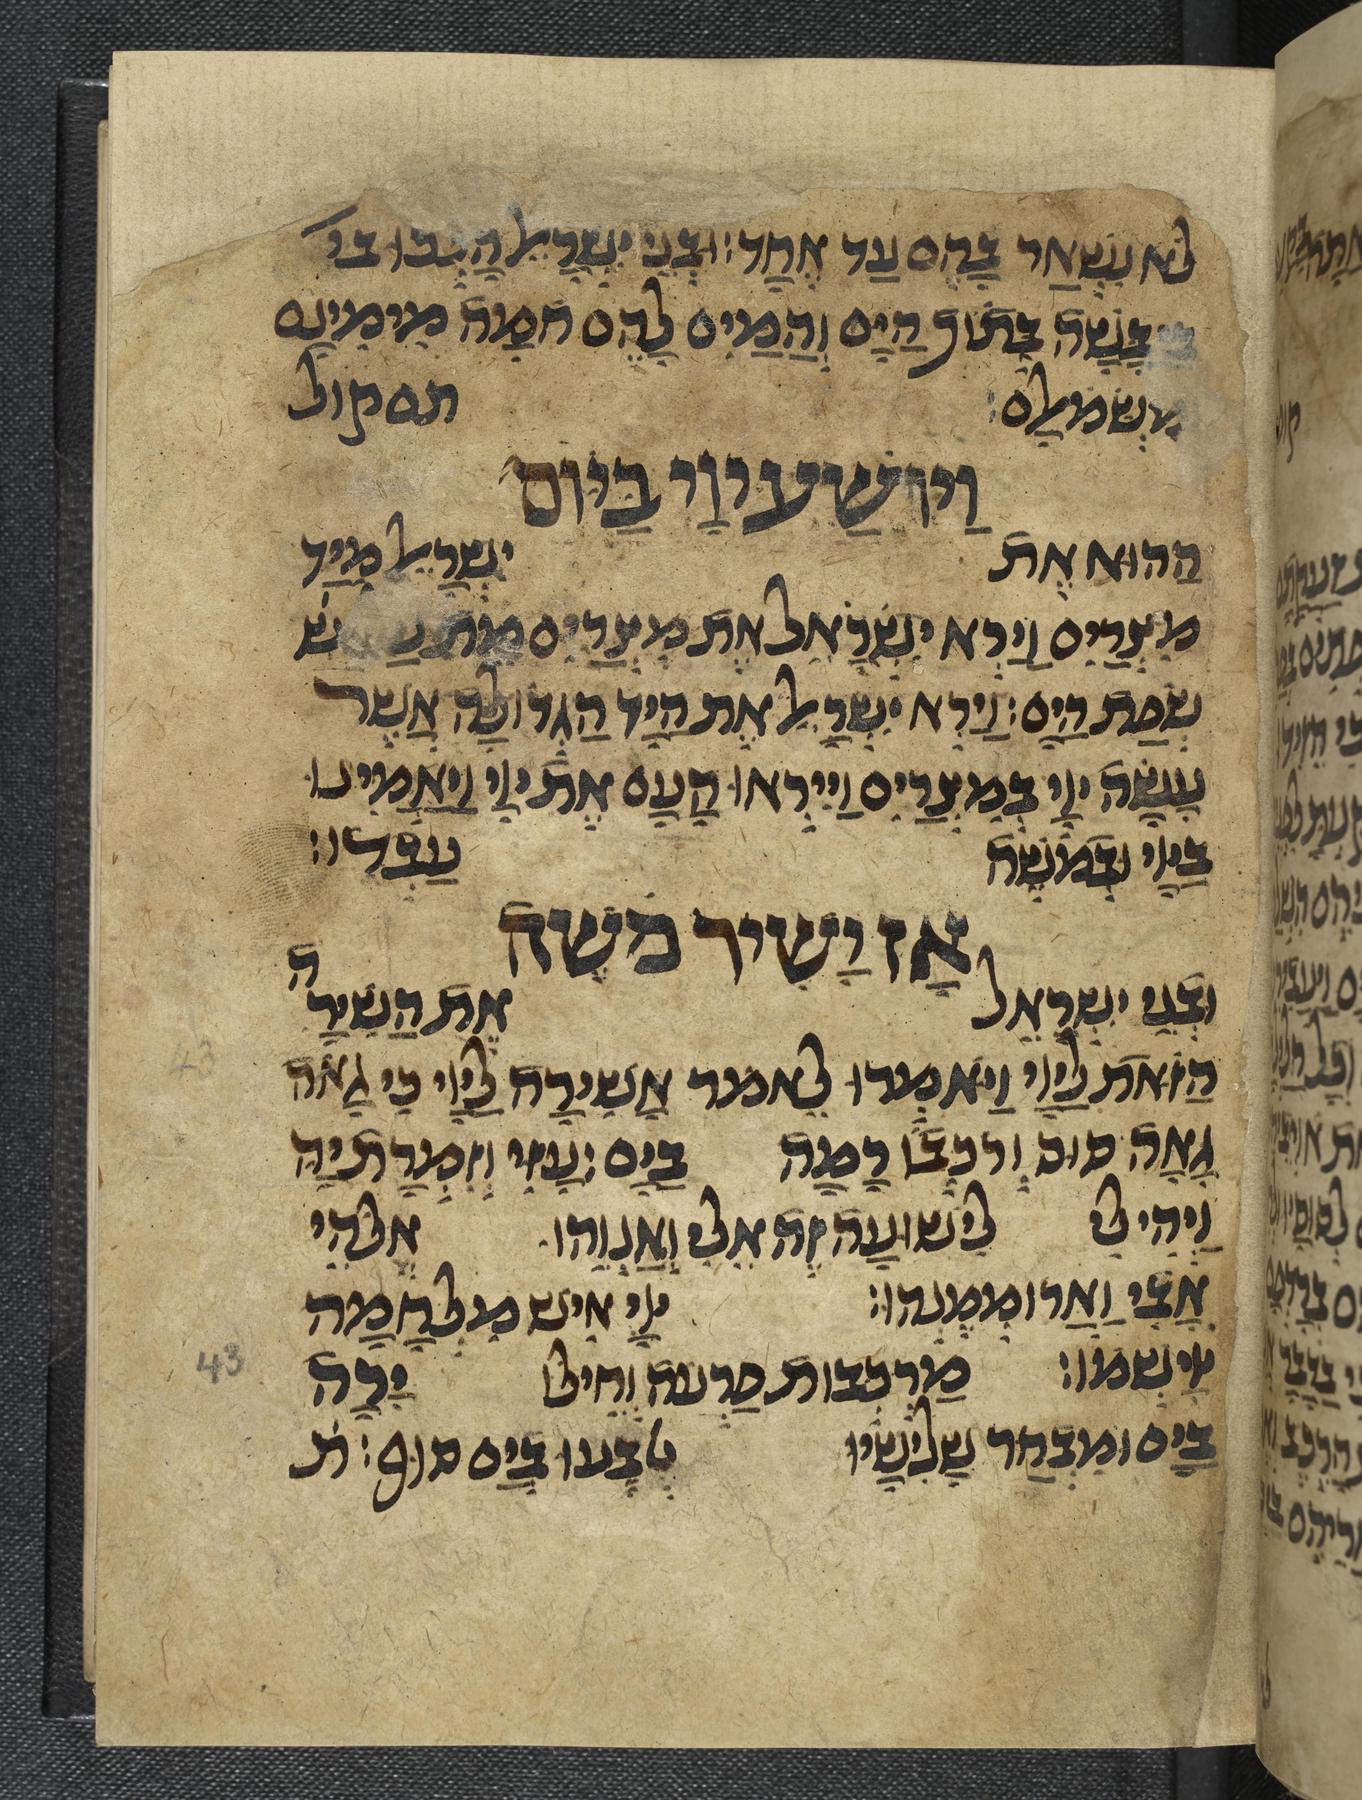 לא נִשְׁאַר בָּהֶם עַד אֶחָד׃ וּבְנֵי יִשְׂרָאֵל הָלְכוּ
בַיַבָּשָׁה בְּתוֹךְ הַיָּם וְהַמַּיִם לָהֶם חמָה מִימִינָם
מִשְּׂמֹלָם׃ תם קול
וַיּוֹשַׁע יְוָי בַּיּוֹם
הַהוּא אֶת יִשְׂרָאֵל מִיַּד
מִצְרַיִם וַיַּרְא יִשְׂרָאֵל אֶת מִצְרַיִם מֵת
שְׂפַת הַיָּם׃ וַיַּרְא יִשְׂרָאֵל אֶת הַיָּד הַגְּדוֹלָה אֲשֶׁר
עָשָׂה יְוָי בְּמִצְרַיִם וַיִּירְאוּ הָעָם אֶת יְוָי וַיַּאֲמִינוּ
בַּיְוָי וּבְמֹשֶׁה עַבְדּוֹ׃
אָז יָשִׁיר מֹשֶׁה
וּבְנֵי יִשְׂרָאֵל אֶת הַשִּׁירָה
הַזֹּאת לַיְוָי וַיֹּאמְרוּ לֵאמֹר אָשִׁירָה לַיְוָי כִּי גָאֹה
גָּאָה סוּס וְרֹכְבוֹ רָמָה בַיָּם׃ עָזִּי וְזִמְרָת יָהּ
וַיְהִי לִי לִישׁוּעָה זֶה אֵלִי וְאַנְוֵהוּ אֱלֹהֵי
אָבִי וַאֲרוֹמִמֶנְהוּ׃ יְוָי אִישׁ מִלְחָמָה
יְוָי שְׁמוֹ׃ מַרְכְּבוֹת פַּרְעֹה וְחֵילוֹ יָרָה
בַיָּם וּמִבְחַר שָׁלִישָׁיו טֻבְּעוּ בְיַם סוּף׃ ת
43
43